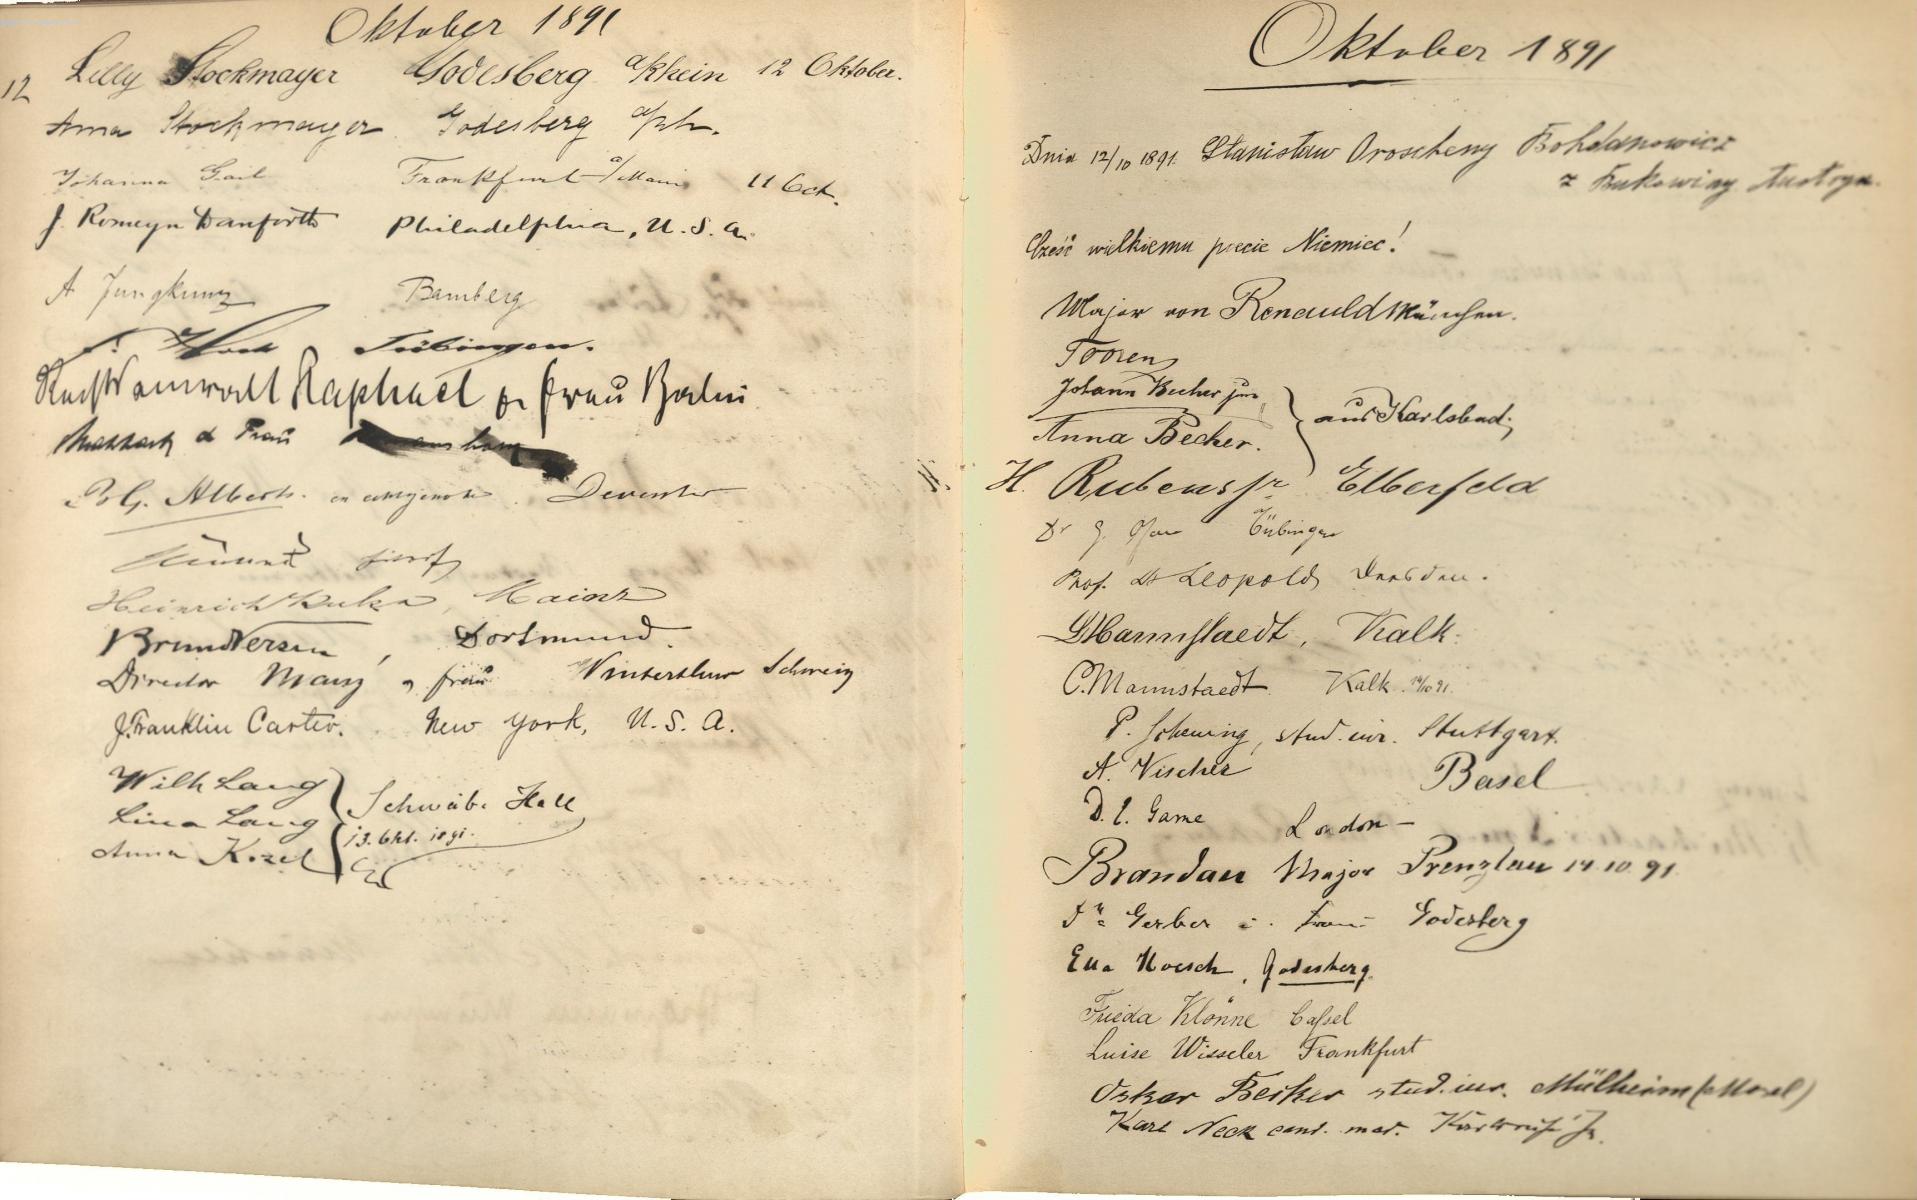 Oktober 1891
12 Lilly Stockmayer Godesberg a/Rhein 12 Oktober.
Anna Stockmayer Godesberg a/Rh.
Johanna Gail Frankfurt a/Main 11 Oct.
J. Romeyn Danforth Philadelphia, U.S.A.
A Jungkunz Bamberg
Tübingen.
Rechtsanwalt Raphael u frau Berlin
& Frau
Alberts. en echtgenote Deventer
Heinrich Kuka, Mainz
Bruno Versen, Dortmund.
Director Many u frau Winterthur Schweiz
J. Franklin Carter. New York, U.S.A.
Wilh Lang
Lina Lang
Anna Kozel
Schwäb. Hall
13. Okt. 1891.
Oktober 1891
Dnia 12/10 1891. Stanisław Oroscheny Bohdanowicz
z Bukowiny Austrya.
Cześć wielkiemu poecie Niemiec!
Major von Renauld München.
Johann Becher jun
Anna Becher.
aus Karlsbad.
H. Rubens jr Elberfeld
Dr Tübingen
Prof. Dr Leopold, Dresden.
L Mannstaedt, Kalk.
C. Mannstaedt Kalk. 14/10 91.
P. Scheuing, stud. iur. Stuttgart.
A. Vischer Basel
D. L. Game London –
Brandau Major Prenzlau 14.10.91
Dr. Gerber u. Frau Godesberg
Ella Hoesch, Godesberg.
Frieda Klönne Cassel
Luise Wisseler Frankfurt
Oskar Becker stud. iur. Mülheim (Mosel)
Karl Neck cand. med.